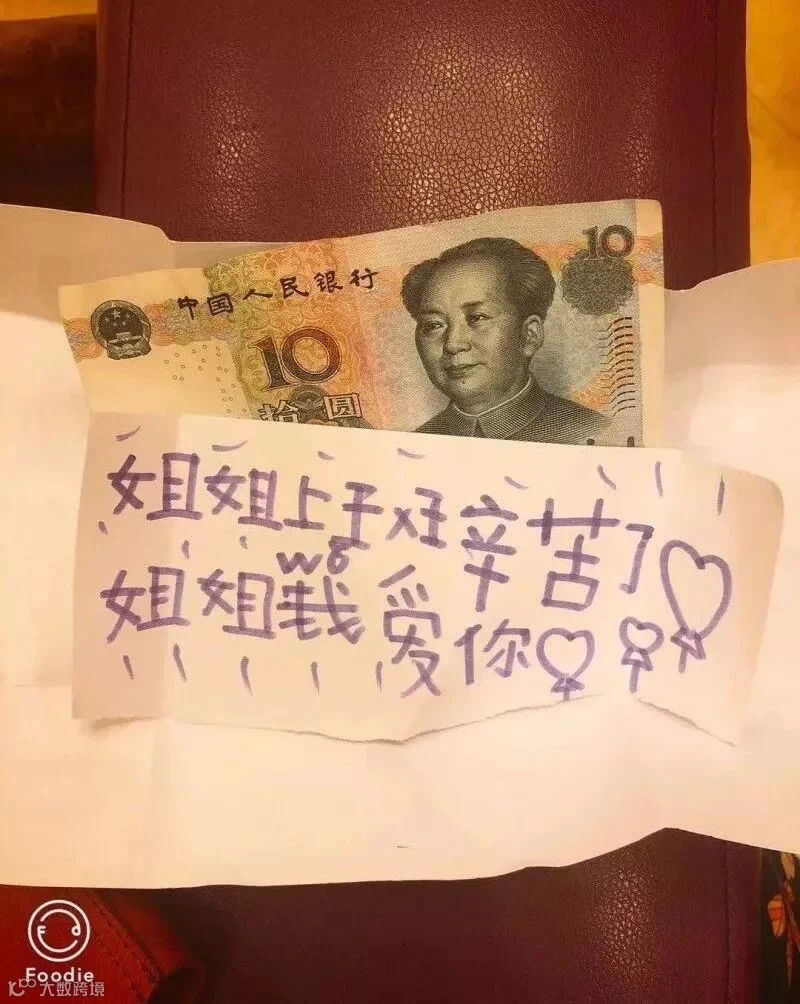 10
中国人民银行
10
拾圆
姐姐上班辛苦了
wǒ
姐姐我爱你
Foodie
大数跨境